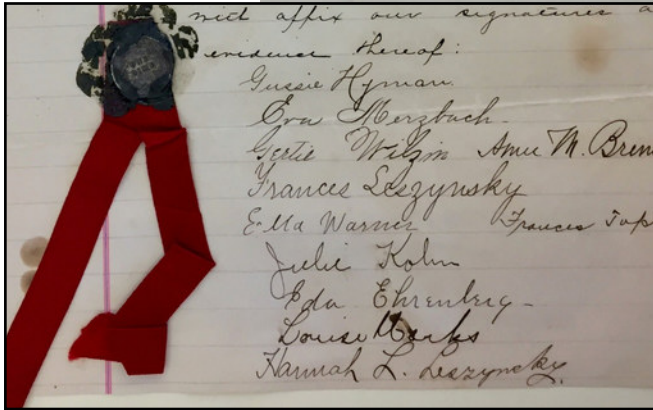 will affix our signatures a
evidence thereof:
Gussie Hyman.
Eva Merzbach.
Gertie Wilzin Amee M. Bren
Frances Leszynsky
Ella Warner Frances Top
Julie Kohn
Eda Ehrenberg
Louise Marks
Hannah L. Leszynsky.